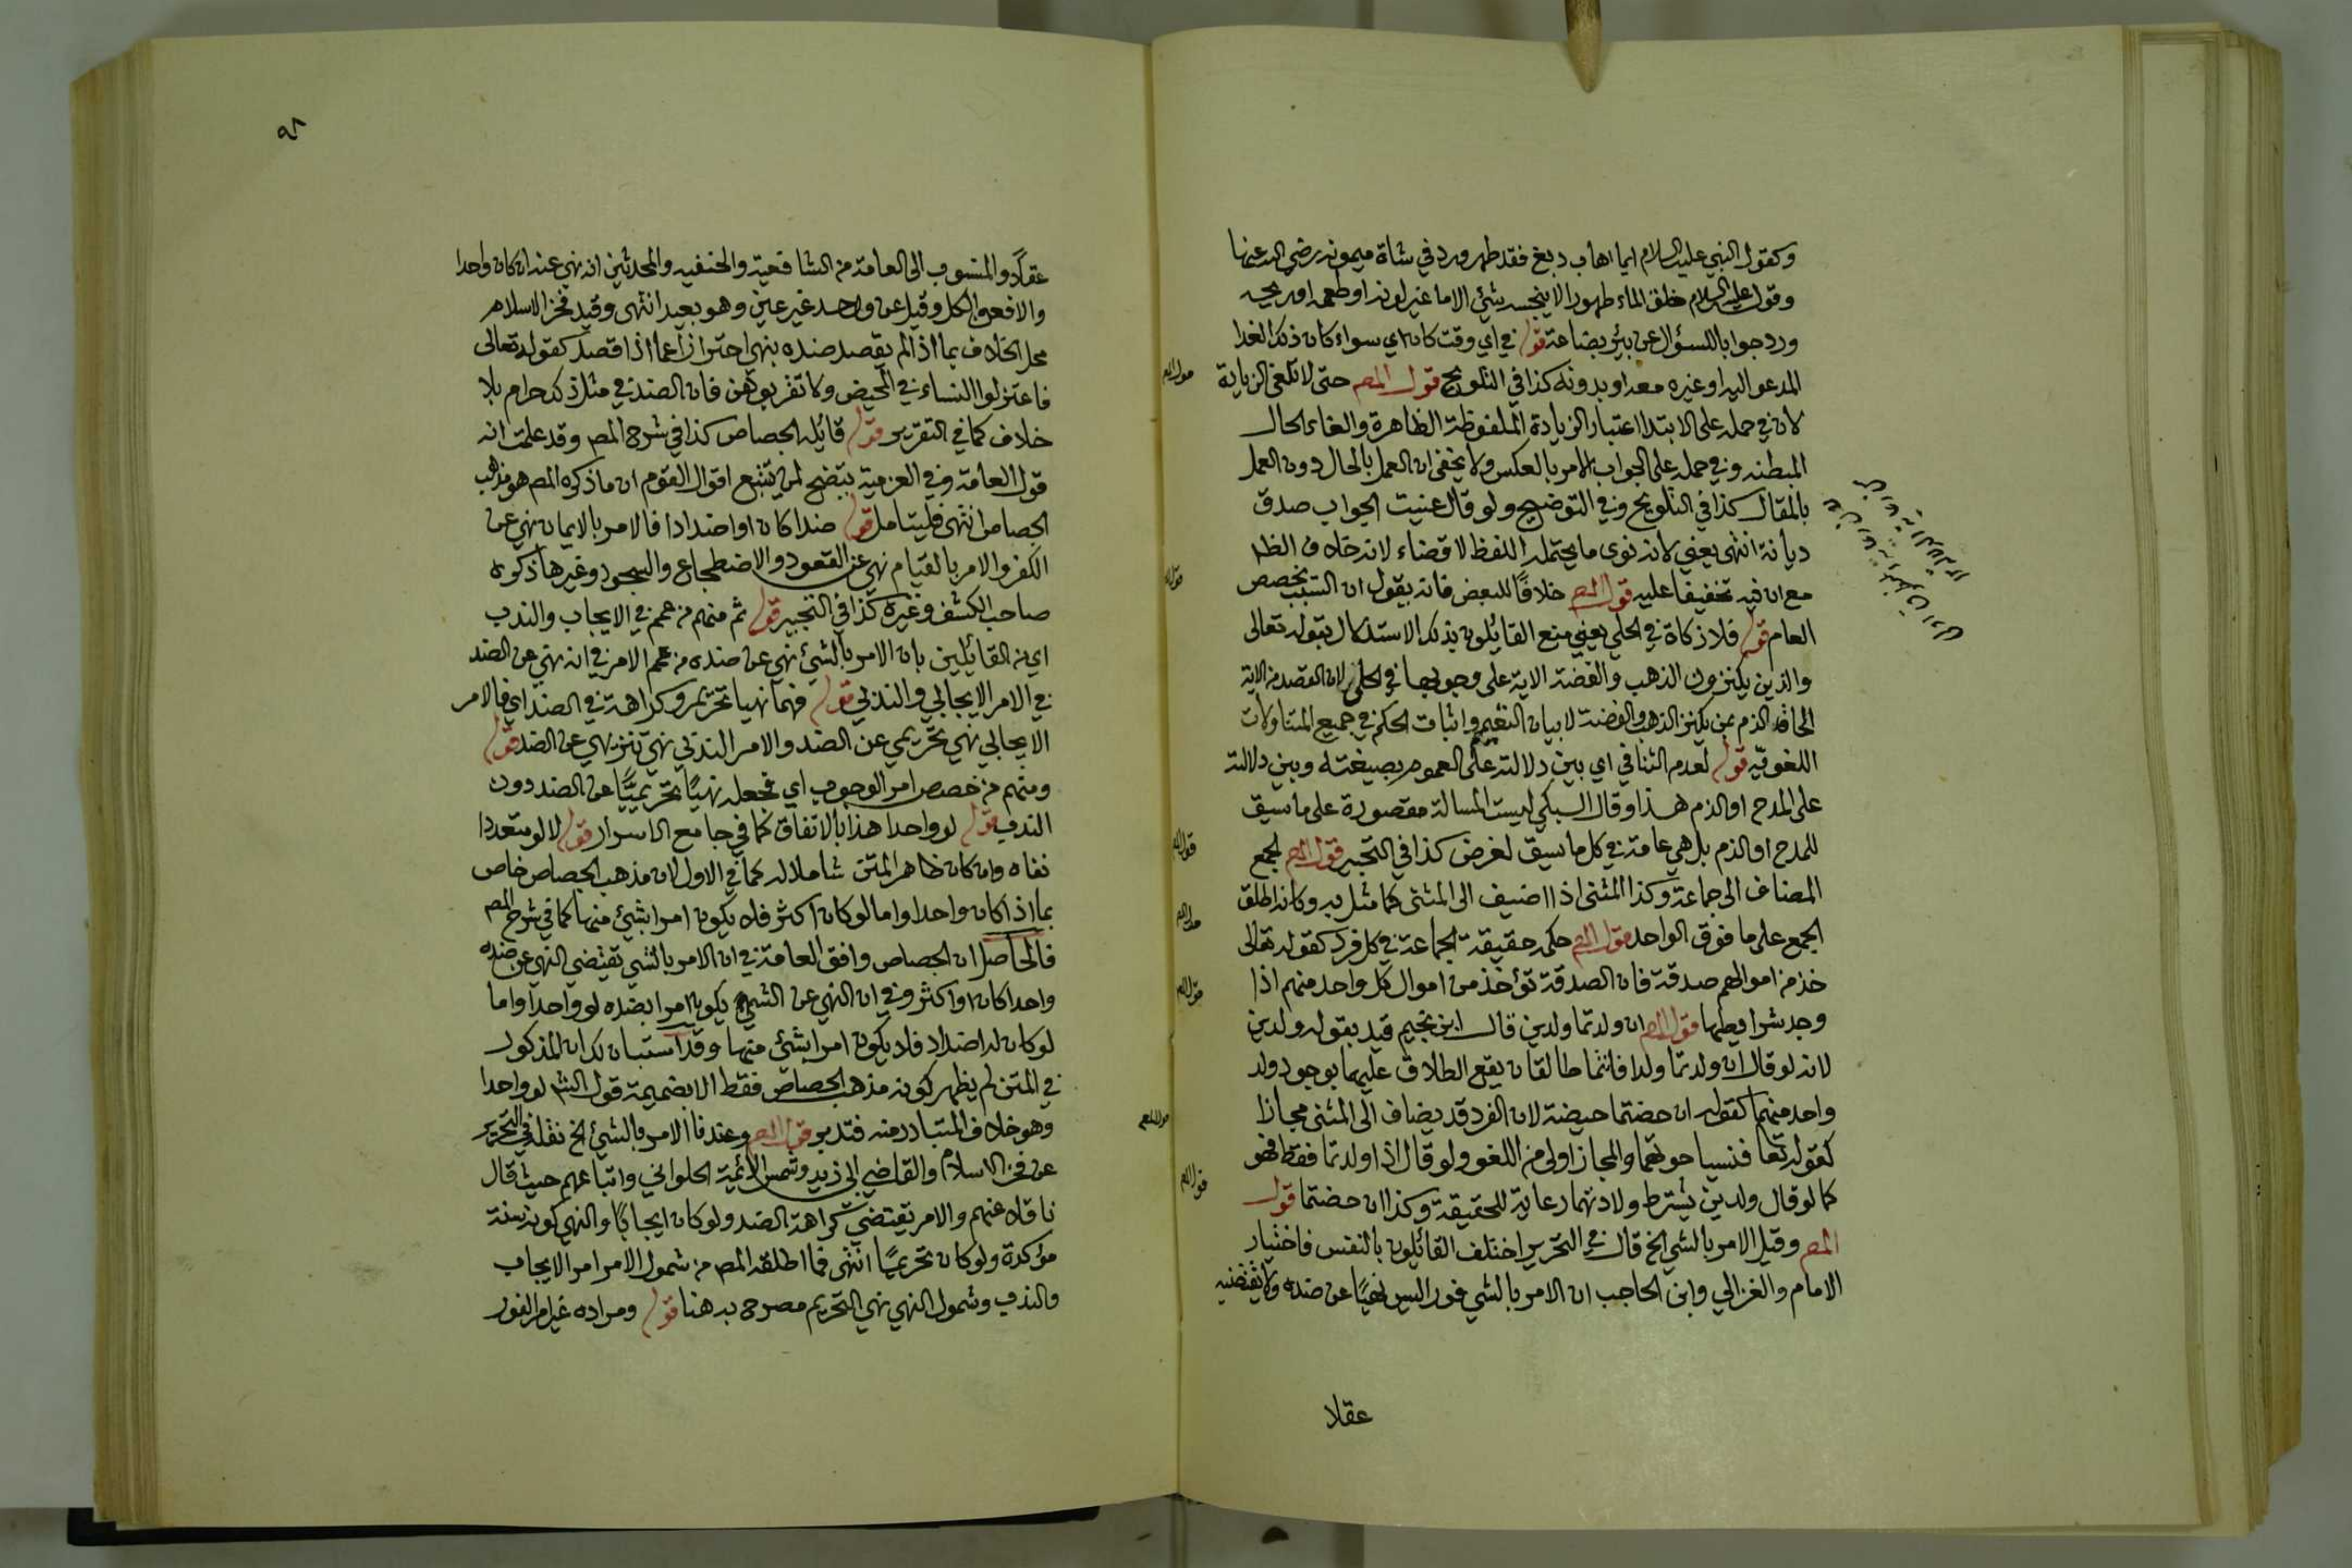 وكقول النبي عليه السلام ايما اهاب دبغ فقد طهر ورد في شاة ميمونه رضي الله عنها
وقول عليه السلام خلق الماء طهورا لا ينجسه شئ الا ما غير لونه او طعمه او ريحه
ورد جوابا للسؤال عن بئر بضاعة قوله في اي وقت كان اي سواء كان ذلك الغدا
المدعو اليه او غيره معه او بدونه كذا في التلويح قول المص حتى لا تلغى الزيادة
لان في حمله على الابتدا اعتبار الزيادة الملفوظة الظاهرة والغاء الحال
المبطنه وفي حمله على الجواب الامر بالعكس ولا يخفى ان العمل بالحال دون العمل
بالمقال كذا في التلويح وفي التوضيح ولو قال عنيت الجواب صدق
ديانة انتهى يعني لانه نوى ما يحتمله اللفظ لا قضاء لانه خلاف الظ
مع ان فيه تخفيفا عليه قول المص خلافًا للبعض فانه يقول ان السبب يخصص
العام قوله فلا زكاة في الحلي يعني منع القائلون بذلك الاستدلال بقوله تعالى
والذين يكنزون الذهب والفضة الاية على وجوبها في الحلي لان القصد من الاية
الحاق الذم بمن يكنز الذهب والفضة لا بيان التعميم واثبات الحكم في جميع المتناولات
اللغوية قوله لعدم التنافي اي بين دلالته على العموم بصيغته وبين دلالته
على المدح او الذم هذا وقال السبكي ليست المسالة مقصورة على ما سيق
للمدح او الذم بل هي عامة في كل ما سيق لغرض كذا في التحبير قول المص لجمع
المضاف الى جماعة وكذا المثنى اذا اضيف الى المثنى كما مثل به وكانه اطلق
الجمع على ما فوق الواحد قول المص حكم حقيقة الجماعة في كل فرد كقوله تعالى
خذ من اموالهم صدقة فان الصدقة تؤخذ من اموال كل واحد منهم اذا
وجد شرايطها قول المص ان ولدتما ولدين قال ابن نجيم قيد بقوله ولدين
لانه لو قال ان ولدتما ولدا فانتما طالقان يقع الطلاق عليهما بوجود ولد
واحد منهما كقوله ان حضتما حيضة لان الفرد قد يضاف الى المثنى مجازا
كقوله تعا فنسيا حوتهما والمجاز اولى من اللغو ولو قال اذا ولدتما فقط فهو
كما لو قال ولدين يشترط ولادتهما رعاية للحقيقة وكذا ان حضتما قول
المص وقيل الامر بالشي الخ قال في التحرير اختلف القائلون بالنفس فاختيار
الامام والغزالي وابن الحاجب ان الامر بالشي فورا ليس نهيًا عن ضده ولا يقتضيه
عقلا
٩٨
عقلًا والمنسوب الى العامة من الشافعية والحنفيه والمحدثين انه نهي عنه ان كان واحدا
والا فعن الكل وقيل عن واحد غير عين وهو بعيد انتهى وقيد فخر الاسلام
محل الخلاف بما اذا لم يقصد ضده بنهي احترازا عما اذا قصد كقوله تعالى
فاعتزلوا النساء في المحيض ولا تقربوهن فان الضد في مثل ذلك حرام بلا
خلاف كما في التقرير قوله قائله الجصاص كذا في شرح المص وقد علمت انه
قول العامة وفي العزمية يتضح لمن يتتبع اقوال القوم ان ما ذكره المص هو مذهب
الجصاص انتهى فليتامل قوله ضدا كان او اضدادا فالامر بالايمان نهي عن
الكفر والامر بالقيام نهي عن القعود والاضطجاع والسجود وغيرها ذكره
صاحب الكشف وغيره كذا في التحبير قوله ثم منهم من عمم في الايجاب والندب
اي من القائلين بان الامر بالشئ نهي عن ضده من عمم الامر في انه نهي عن الضد
في الامر الايجابي والندبي قوله فهما نهيا تحريم وكراهة في الضد اي فالامر
الايجابي نهي تحريمي عن الضد والامر الندبي نهي تنزيهي عن الضد قوله
ومنهم من خصص امر الوجوب اي فجعله نهيًا تحريميًّا عن الضد دون
الندب قوله لو واحدا هذا بالاتفاق كما في جامع الاسرار قوله لا لو متعددا
نفاه وان كان ظاهر المتن شاملا له كما في الاول لان مذهب الجصاص خاص
بما اذا كان واحدا واما لو كان اكثر فلا يكون امرا بشئ منها كما في شرح المص
فالحاصل ان الجصاص وافق العامة في ان الامر بالشي يقتضي النهي عن ضده
واحدا كان او اكثر وفي ان النهي عن الشي يكون امرا بضده لو واحدا واما
لو كان له اضداد فلا يكون امرا بشئ منها وقد استبان لك ان المذكور
في المتن لم يظهر كونه مذهب الجصاص فقط الا بضميمة قول الش لو واحدا
وهو خلاف المتبادر منه فتدبر قول المص وعندنا الامر بالشئ الخ نقله في التحرير
عن فخر الاسلام والقاضي ابي زيد وشمس الائمة الحلواني واتباعهم حيث قال
ناقلا عنهم والامر يقتضي كراهة الضد ولو كان ايجابًا والنهي كونه سنة
مؤكدة ولو كان تحريميًا انتهى فما اطلقه المص من شمول الامر امر الايجاب
والندب وشمول النهي نهي التحريم مصرح به هنا قوله ومراده غير امر الفور